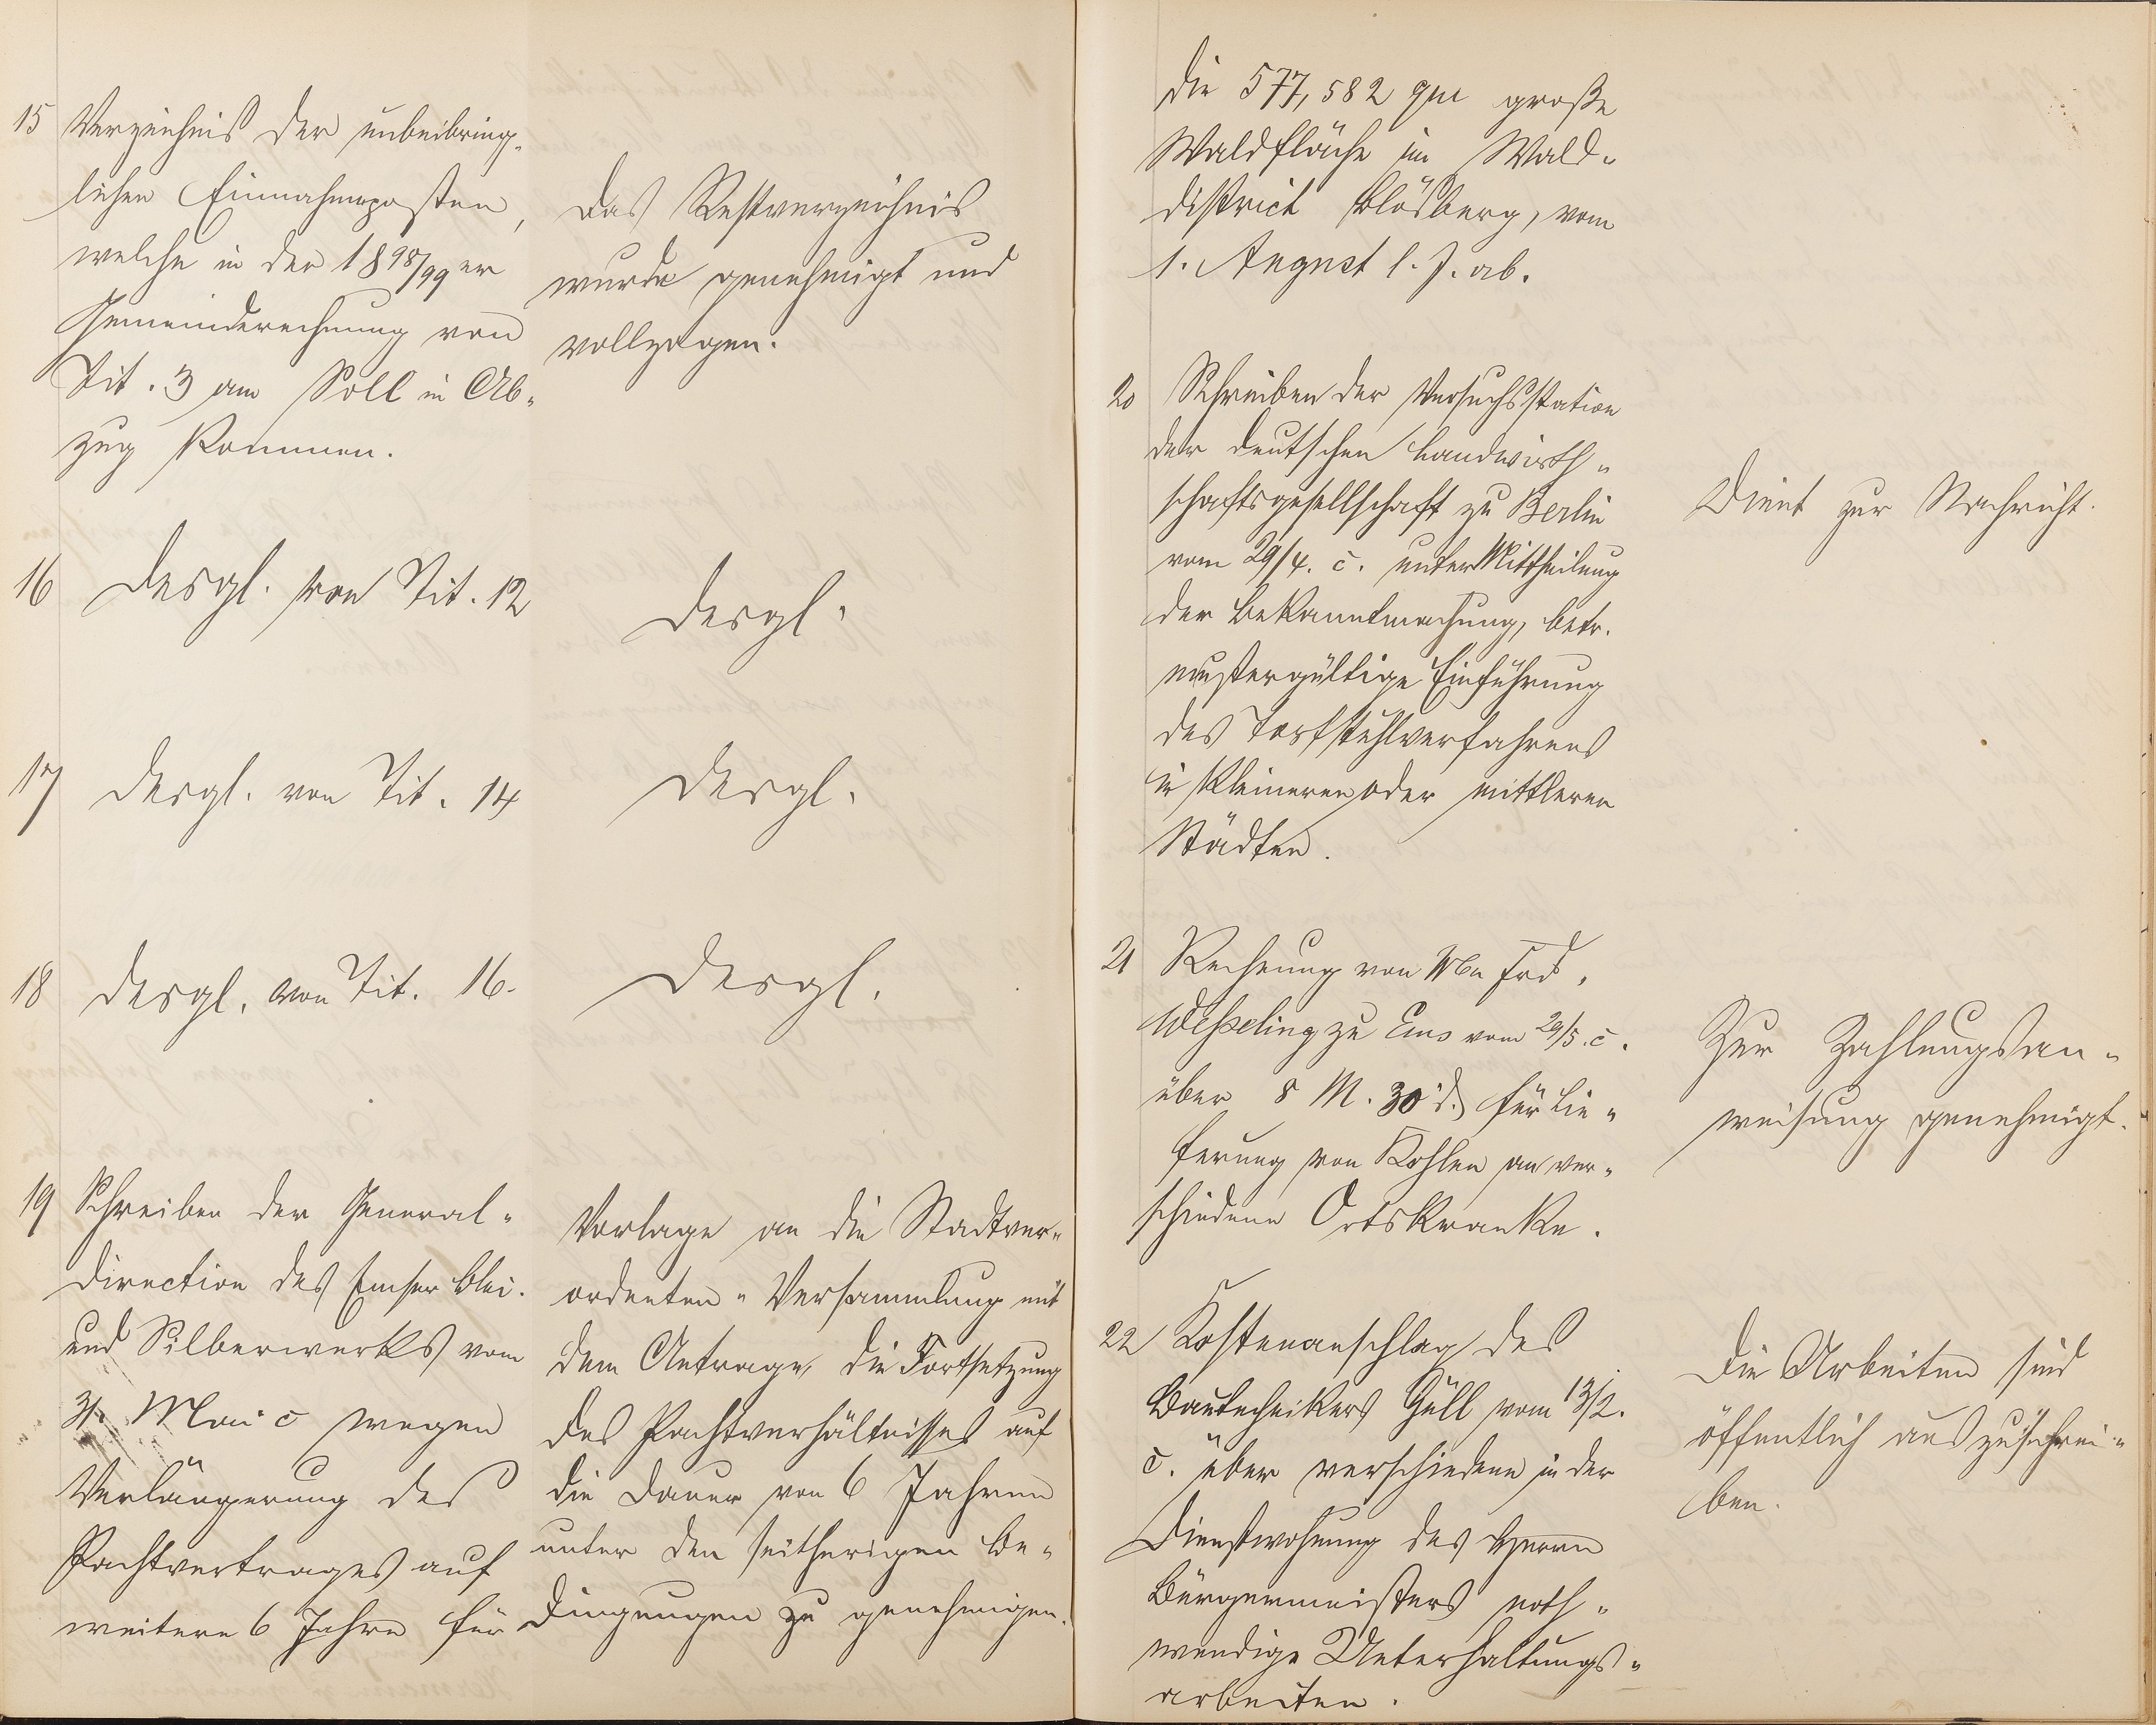 15 Verzeichnis der unbeibring-
lichen Einnahmeposten,
welche in der 1898/99er
Gemeinderechnung von
Tit. 3 am Soll in Ab-
zug kommen.
Das Restverzeichnis
wurde genehmigt und
vollzogen.
16 Desgl. von Tit. 12
Desgl.
17 Desgl. von Tit. 14
Desgl.
18 Desgl. von Tit. 16.
Desgl.
19 Schreiben der General-
direction des Emser Blei-
und Silberwerks vom
31. Mai c wegen
Verlängerung des
Pachtvertrages auf
weitere 6 Jahre für
Vorlage an die Stadtver-
ordneten-Versammlung mit
dem Antrage, die Fortsetzung
des Pachtverhältnisses auf
die Dauer von 6 Jahren
unter den seitherigen Be-
dingungen zu genehmigen.
die 577,582 qm große
Waldfläche im Wald-
district Blösberg, vom
1. August l. J. ab.
20 Schreiben der Versuchsstation
der deutschen Landwirth-
schaftsgesellschaft zu Berlin
vom 29/4. c. unter Mittheilung
der Bekanntmachung, betr.
mustergültige Einführung
des Torfstuhlverfahrens
in kleineren oder mittleren
Städten.
Dient zur Nachricht.
21 Rechnung von Frd.
Wesseling zu Ems vom 29/5. c.
über 8 M. 30 d. für Lie-
ferung von Kohlen an ver-
schiedene Ortskranke.
Zur Zahlungsan-
weisung genehmigt.
22 Kostenanschlag des
Bautechnikers Güll vom 13/2.
c. über verschiedene in der
Dienstwohnung des Herrn
Bürgermeisters noth-
wendige Unterhaltungs-
arbeiten.
Die Arbeiten sind
öffentlich auszuschrei-
ben.